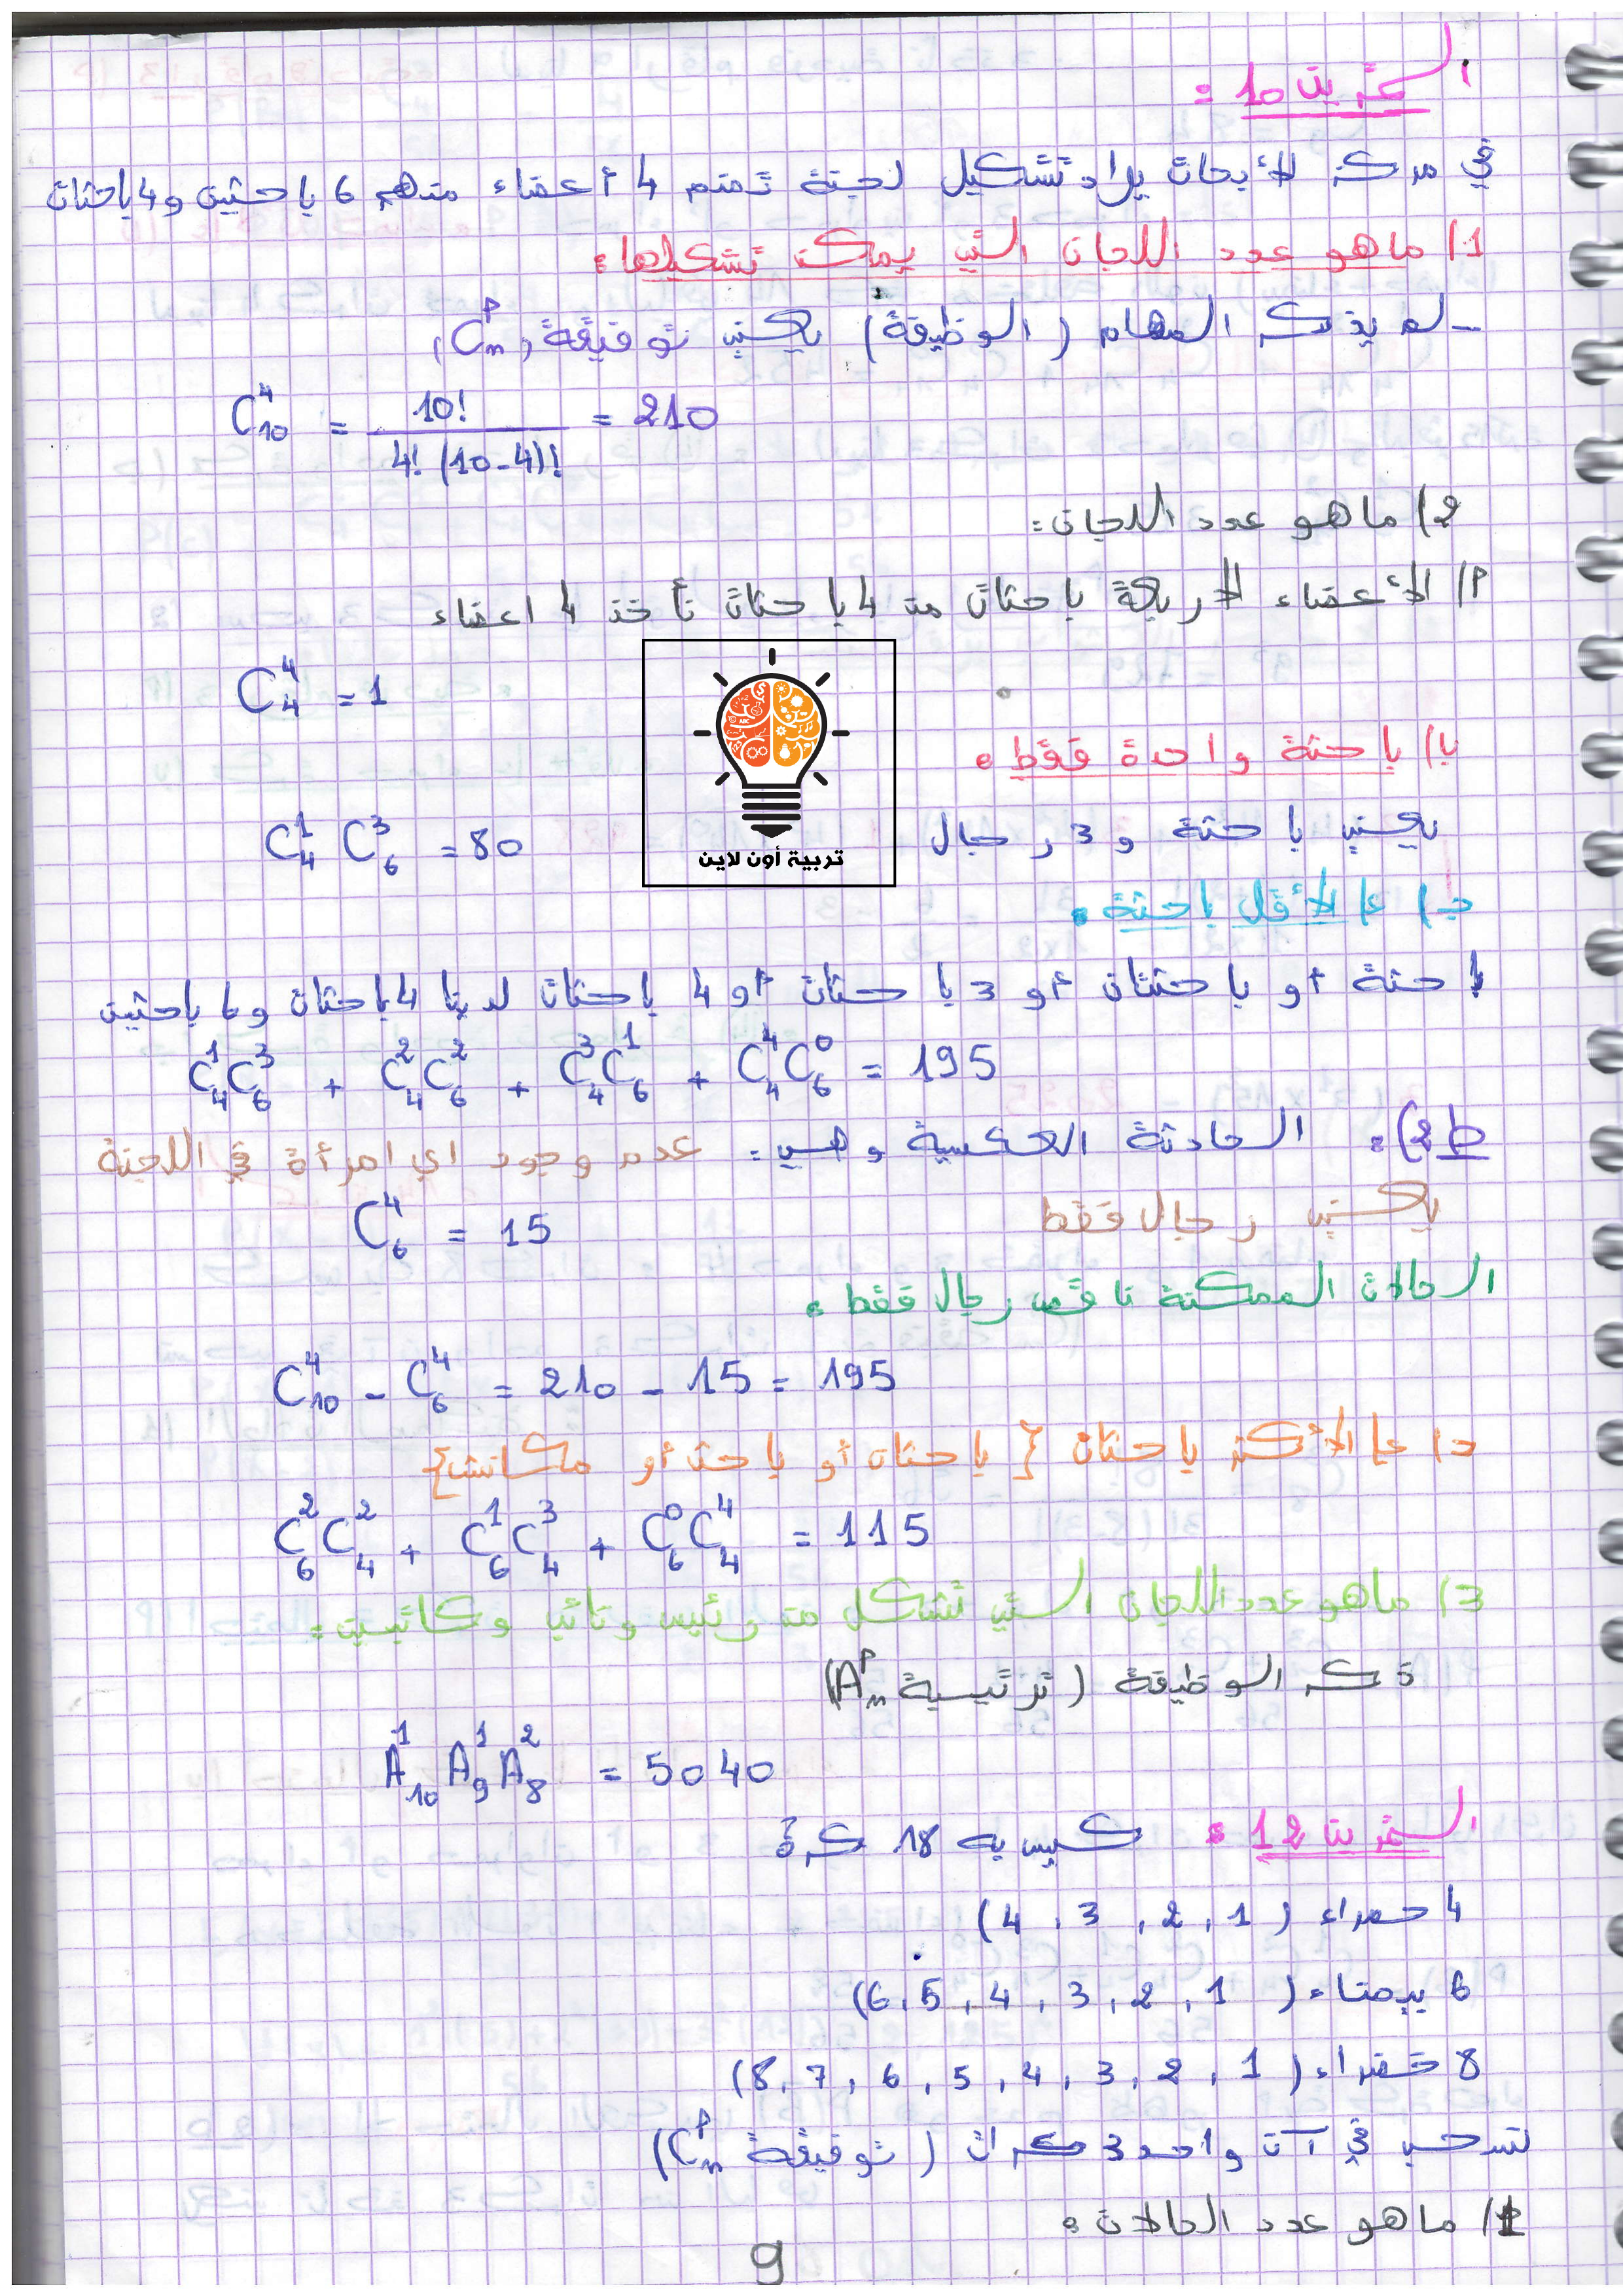 التمرين 10 :
في مركز لأبحاث يراد تشكيل لجنة تضم 4 أعضاء منهم 6 باحثين و 4 باحثات
1) ما هو عدد اللجان التي يمكن تشكيلها :
- لم يذكر المهام ( الوظيفة ) يعني توفيقة ( C_n^p )
C_10^4 = 10! / 4! (10-4)! = 210
2) ما هو عدد اللجان :
أ) الأعضاء الأربعة باحثات من 4 باحثات نأخذ 4 اعضاء
C_4^4 = 1
ب) باحثة واحدة فقط :
يعني باحثة و 3 رجال
C_4^1 C_6^3 = 80
تربية أون لاين
ج) على الأقل باحثة :
باحثة أو باحثتان أو 3 باحثات أو 4 باحثات لدينا 4 باحثات و 6 باحثين
C_4^1 C_6^3 + C_4^2 C_6^2 + C_4^3 C_6^1 + C_4^4 C_6^0 = 195
ط 2) : الحادثة العكسية وهي : عدم وجود اي امرأة في اللجنة
يعني رجال فقط
C_6^4 = 15
الحالات الممكنة ناقص رجال فقط :
C_10^4 - C_6^4 = 210 - 15 = 195
د) على الأكثر باحثان { باحثان أو باحث أو مكانش }
C_6^2 C_4^2 + C_6^1 C_4^3 + C_6^0 C_4^4 = 115
3) ما هو عدد اللجان التي تتشكل من رئيس ونائب وكاتبين :
ذكر الوظيفة ( ترتيبة A_n^p )
A_10^1 A_9^1 A_8^2 = 5040
التمرين 12 : كيس به 18 كرة
4 حمراء ( 1 , 2 , 3 , 4 )
6 بيضاء ( 1 , 2 , 3 , 4 , 5 , 6 )
8 خضراء ( 1 , 2 , 3 , 4 , 5 , 6 , 7 , 8 )
نسحب في آن واحد 3 كرات ( توفيقة C_n^p )
1) ما هو عدد الحالات :
9